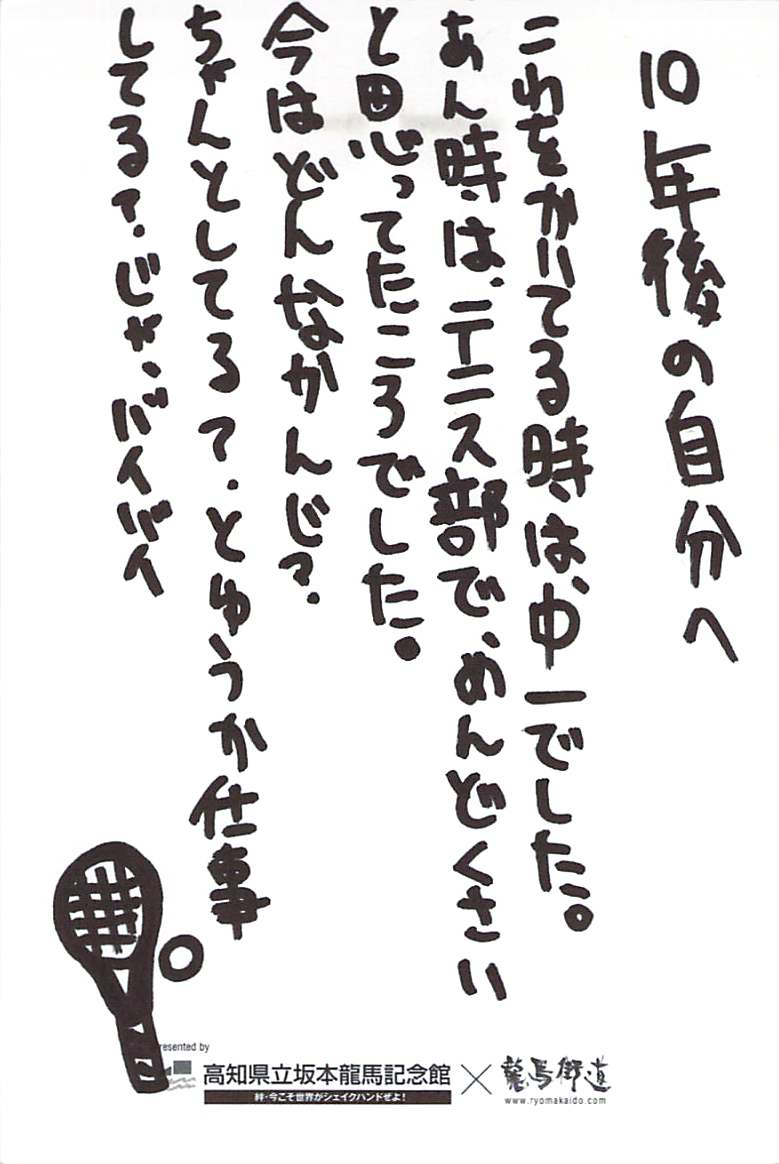 10年後の自分へ
これをかいてる時は、中一でした。
あん時は、テニス部で、めんどくさい
と思ってたころでした。
今はどんなかんじ?.
ちゃんとしてる?.とゆうか仕事
してる?.じゃ、バイバイ
resented by
高知県立坂本龍馬記念館
絆・今こそ世界がシェイクハンドぜよ!
×
龍馬街道
www.ryomakaido.com